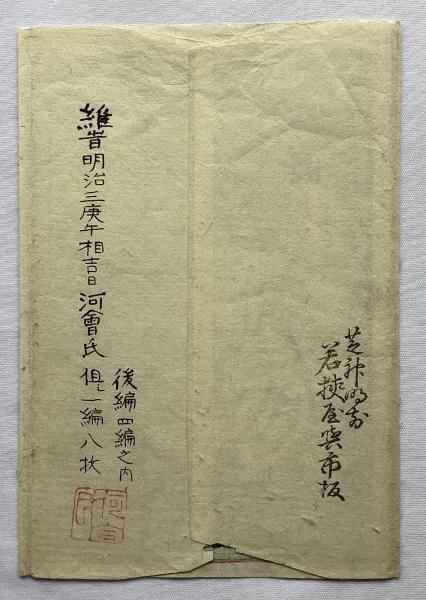 芝神明前
若狭屋與市板
後編四編之内
維旹明治三庚午相吉日河會氏但し一編八枚